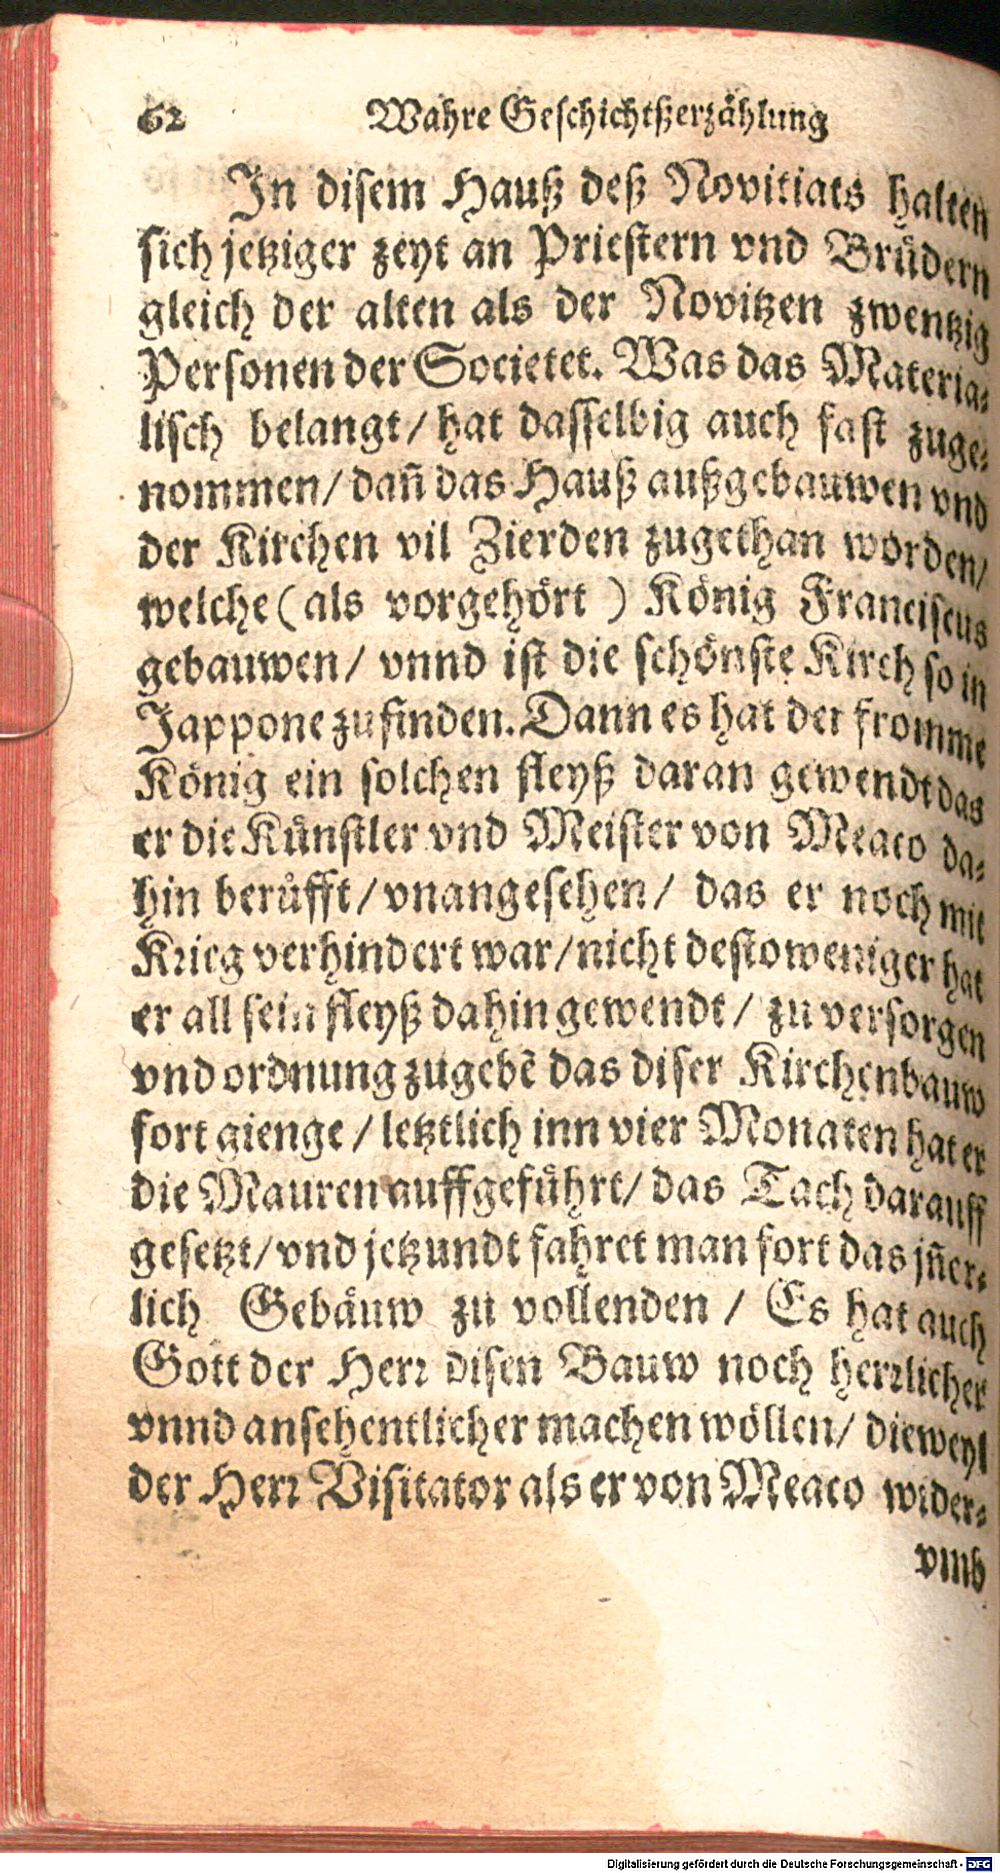 62 Wahre Geschichtßerzählung
In disem Hauß deß Novitiats halten
sich jetziger zeyt an Priestern vnd Brüdern
gleich der alten als der Novitzen zwentzig
Personen der Societet. Was das Materia-
lisch belangt/ hat dasselbig auch fast zuge-
nommen/ dañ das Hauß außgebauwen vnd
der Kirchen vil Zierden zugethan worden/
welche (als vorgehört) König Franciscus
gebauwen/ vnnd ist die schönste Kirch so in
Jappone zufinden. Dann es hat der fromme
König ein solchen fleyß daran gewendt das
er die Künstler vnd Meister von Meaco da-
hin berüfft/ vnangesehen/ das er noch mit
Krieg verhindert war/ nicht destoweniger hat
er all sein fleyß dahin gewendt/ zu versorgen
vnd ordnung zugebē das diser Kirchenbauw
fort gienge/ letztlich inn vier Monaten hat er
die Mauren auffgeführt/ das Tach darauff
gesetzt/ vnd jetzundt fahret man fort das jñer-
lich Gebäuw zu vollenden/ Es hat auch
Gott der Herr disen Bauw noch herrlicher
vnnd ansehentlicher machen wöllen/ dieweyl
der Herr Visitator als er von Meaco wider-
vmb
Digitalisierung gefördert durch die Deutsche Forschungsgemeinschaft - DFG